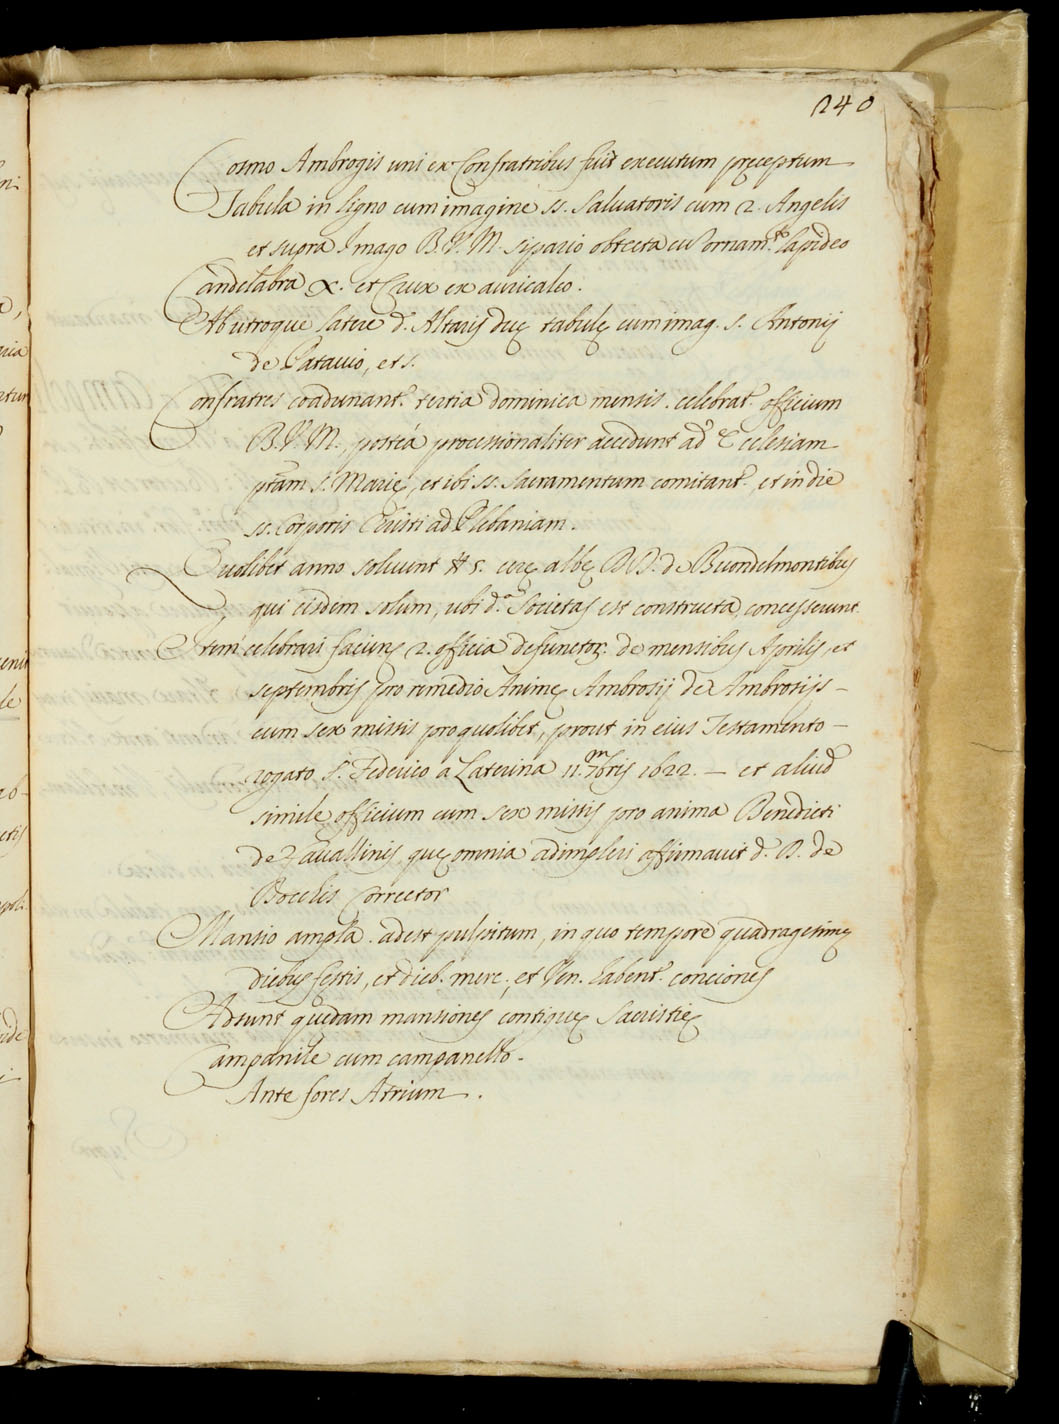 240
Cosmo Ambrogis uni ex Confratribus fuit executum preceptum
Tabula in ligno cum imagine ss. Saluatoris cum 2. Angelis
et supra Imago B. V. M. sipario obtecta cu ornam.to lapideo
Candelabra X. et Crux ex auricalco.
Ab utroque latere d. Altaris duę tabulę cum imag. s. Antonij
de Patauio, et s.
Confratres coadunant. tertia dominica mensis. celebrat. officium
B. V. M., posteà processionaliter accedunt ad Ecclesiam
ptam s. Marię, et ibi ss. Sacramentum comitant. et in die
ss. Corporis Christi ad Plebaniam.
Quolibet anno soluunt # 5. cerę albę DD. de Buondelmontibus
qui eisdem solum, ubi d.a Societas est constructa, concesserunt.
Item celebrari faciunt 2. officia defunctor. de mensibus Aprilis, et
septembris pro remedio Animę Ambrosij de Ambrosijs –
cum sex missis pro quolibet, prout in eius Testamento –
rogato s. Federico a Laterina 11. 7mbris 1622. – et aliud
simile officium cum sex missis pro anima Benedicti
de Cauallinis, quę omnia adimpleri affirmauit d. B. de
Bocelis Corrector
Mansio ampla. adest pulpitum, in quo tempore quadragesimę
diebus festis, et dieb. merc., et Ven. labent. conciones
Adsunt quędam mansiones contiguę Sacristię
Campanile cum campanello.
Ante fores Atrium.